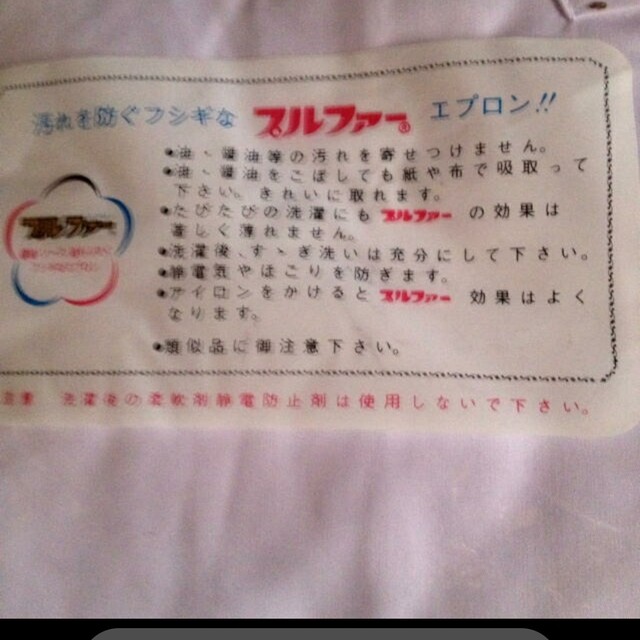 汚れを防ぐフシギな スルファー® エプロン!!
●油、醤油等の汚れを寄せつけません。
●油、醤油をこぼしても紙や布で吸取って
下さい。きれいに取れます。
●たびたびの洗濯にもスルファーの効果は
著しく薄れません。
●洗濯後、すゝぎ洗いは充分にして下さい。
●静電気やほこりを防ぎます。
●アイロンをかけるとスルファー効果はよく
なります。
●類似品に御注意下さい。
スルファー
洗濯後の柔軟剤静電防止剤は使用しないで下さい。